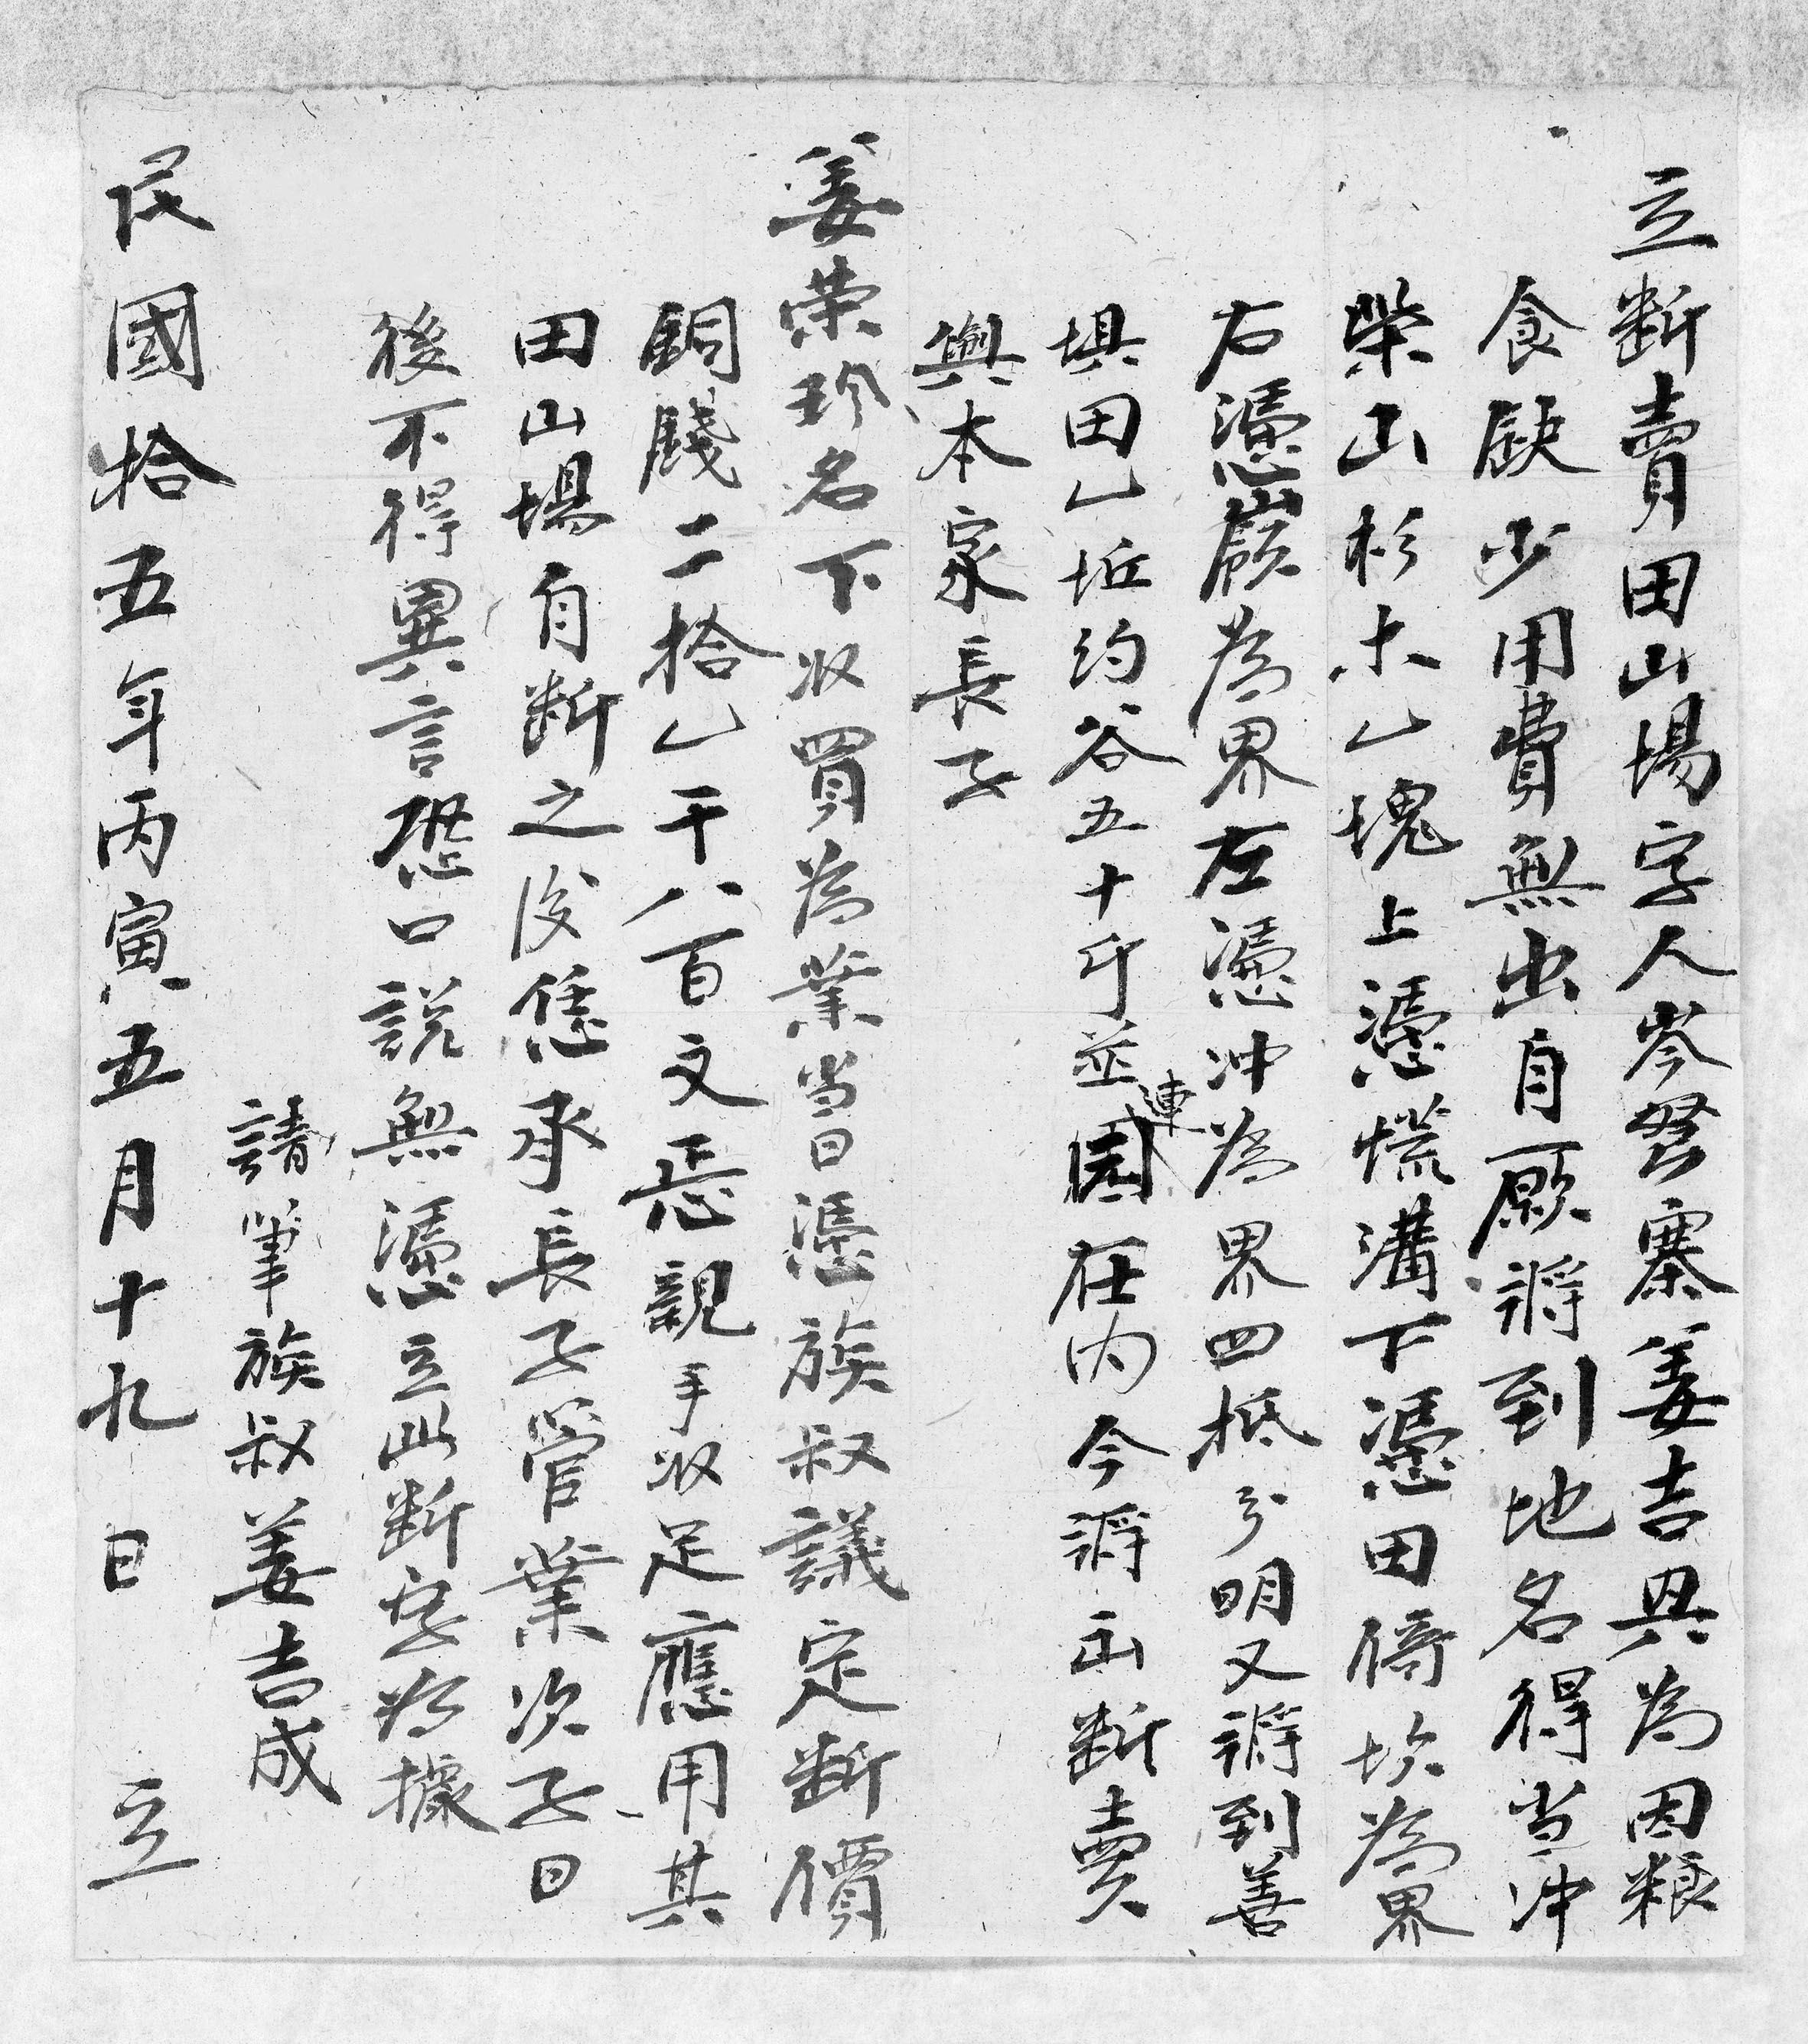 立断賣田山塲字人岑努寨姜吉興為因粮
食缺少用費無出自愿將到地名得当冲
柴山杉木乚塊上憑慌溝下憑田倚坎為界
右憑嶺為界左憑冲為界四抵分明又將到善
埧田乚坵約谷五十斤並連園在内今將出断賣
與本家長子
姜荣珍名下收買為業当日憑族叔議定断價
銅錢二拾乚千八百文悉親手收足應用其
田山塲自断之後恁承長子管業次子日
後不得異言恐口説無憑立此断字為據
請筆族叔姜吉成
民國拾五年丙寅五月十九日立